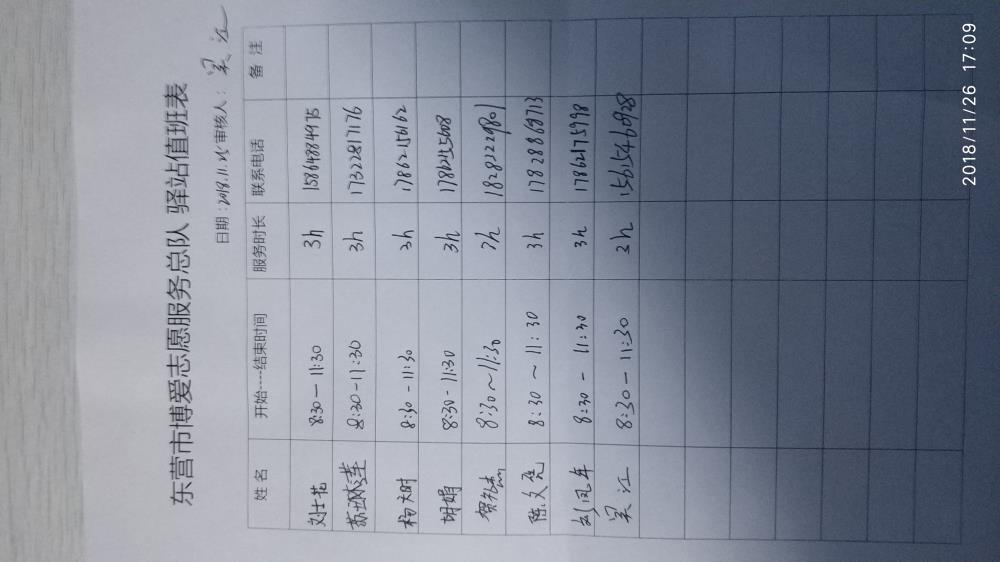 东营市博爱志愿服务总队 驿站值班表
日期：2018.11.25 审核人：吴江
姓名 开始----结束时间 服务时长 联系电话 备注
刘士花 8:30-11:30 3h 15864884975
8:30-11:30 3h 17322817176
杨天时 8:30-11:30 3h 17862156162
胡娟 8:30-11:30 3h
8:30~11:30 3h 18282229801
陈文亮 8:30~11:30 3h 17828869713
刘凤年 8:30-11:30 3h 17862175998
吴江 8:30-11:30 3h 15615468928
2018/11/26 17:09